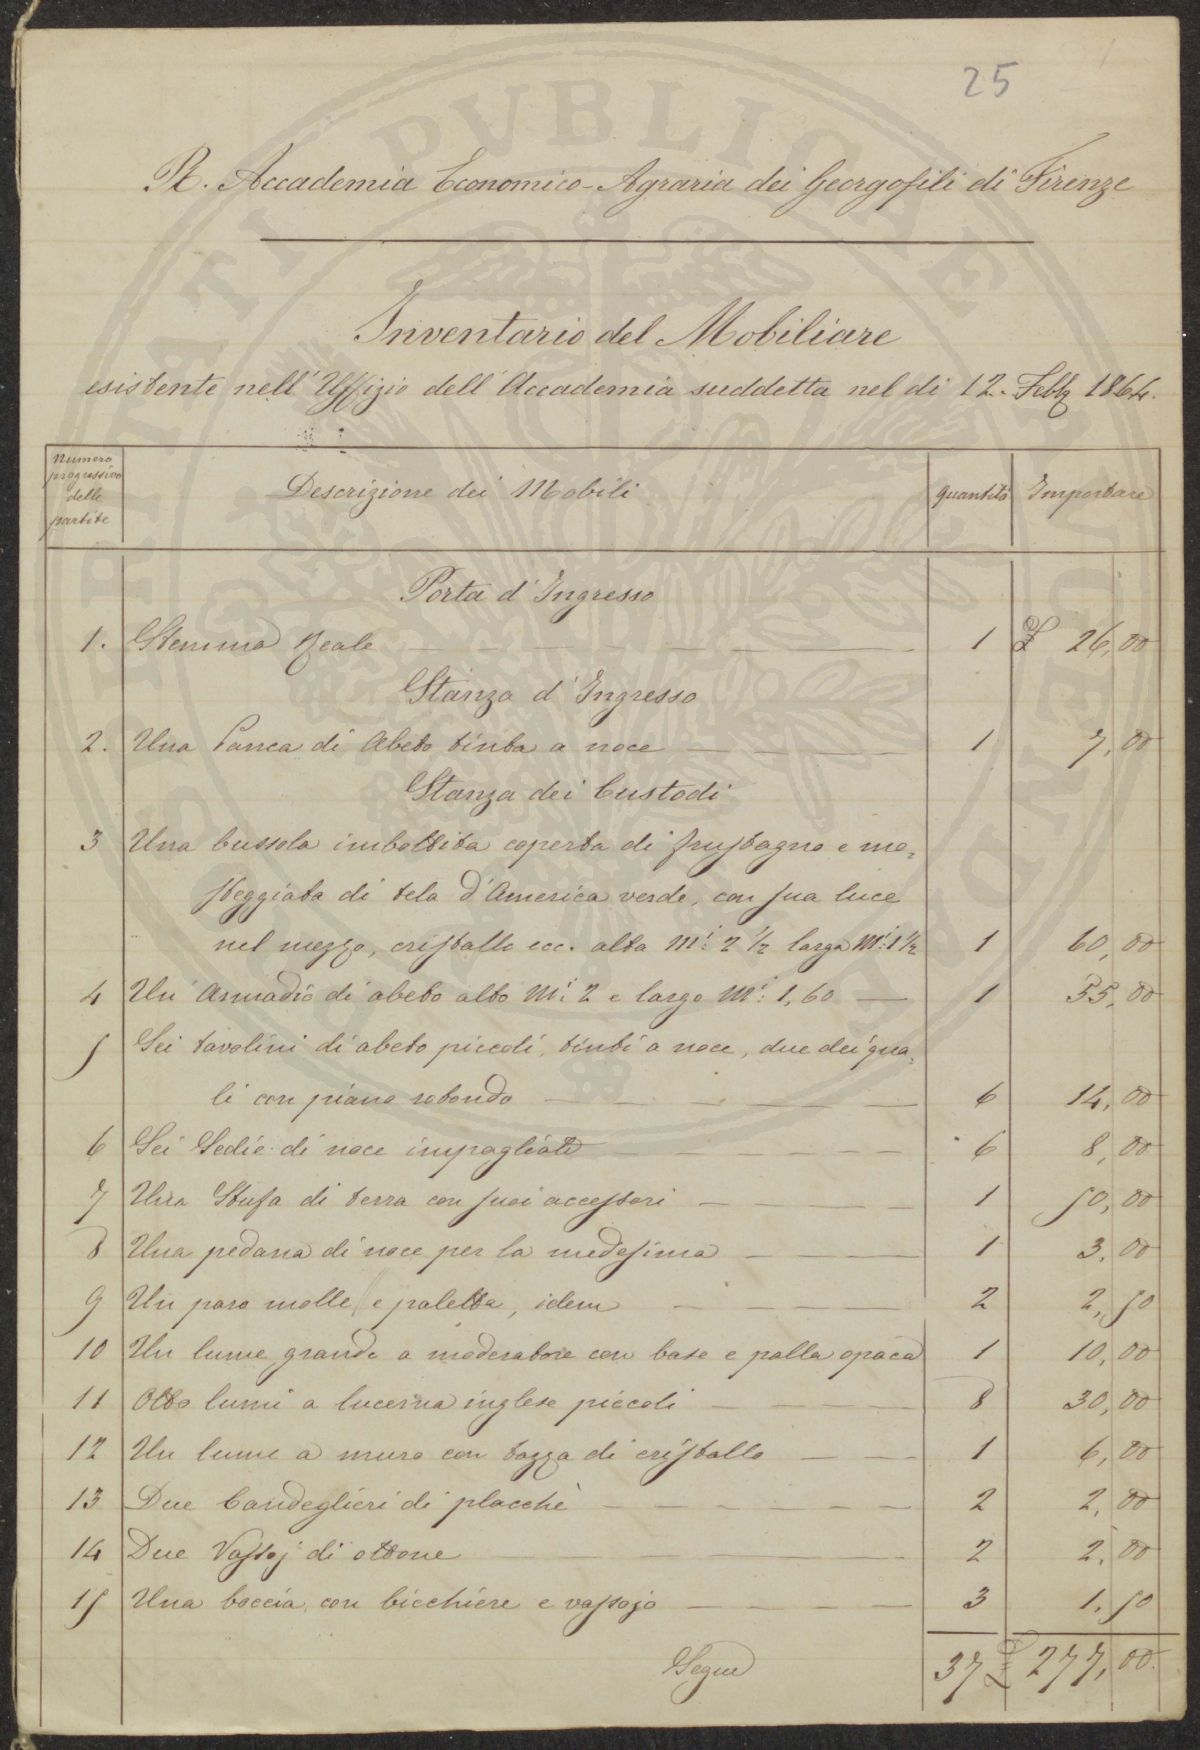 25
R. Accademia Economico-Agraria dei Georgofili di Firenze
Inventario del Mobiliare
esistente nell'Uffizio dell'Accademia suddetta nel di 12. Febb 1864.
Numero progressivo delle partite Descrizione dei Mobili quantità Importare
Porta d'Ingresso
1. Stemma Reale 1 £ 26,00
Stanza d'Ingresso
2. Una Panca di Abeto tinta a noce 1 7,00
Stanza dei Custodi
3 Una bussola imbottita coperta di frustagno e ma=
steggiata di tela d'America verde, con sua luce
nel mezzo, cristallo ecc. alta Mi: 2 1/2 larga Mi: 1 1/2 1 60,00
4 Un'Armadio di abeto alto Mi: 2 e largo Mi: 1,60 1 55,00
5 Sei tavolini di abeto piccoli, tinti a noce, due dei qua=
li con piano rotondo 6 14,00
6 Sei Sedie di noce impagliate 6 8,00
7 Una Stufa di terra con suoi accessori 1 50,00
8 Una pedana di noce per la medesima 1 3,00
9 Un paro molle e paletta, idem 2 2,50
10 Un lume grande a moderatore con base e palla opaca 1 10,00
11 Otto lumi a lucerna inglese piccoli 8 30,00
12 Un lume a muro con tazza di cristallo 1 6,00
13 Due Candeglieri di placchè 2 2,00
14 Due Vassoj di ottone 2 2,00
15 Una boccia con bicchiere e vassojo 3 1,50
Segue 37 £ 277,00.